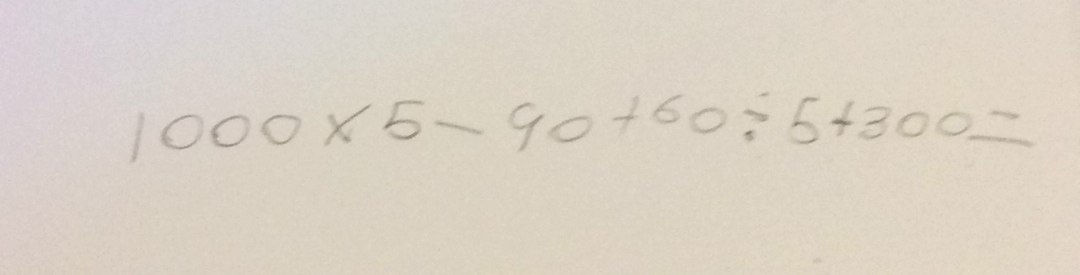 1000 × 5 - 90 + 60 ÷ 5 + 300 =